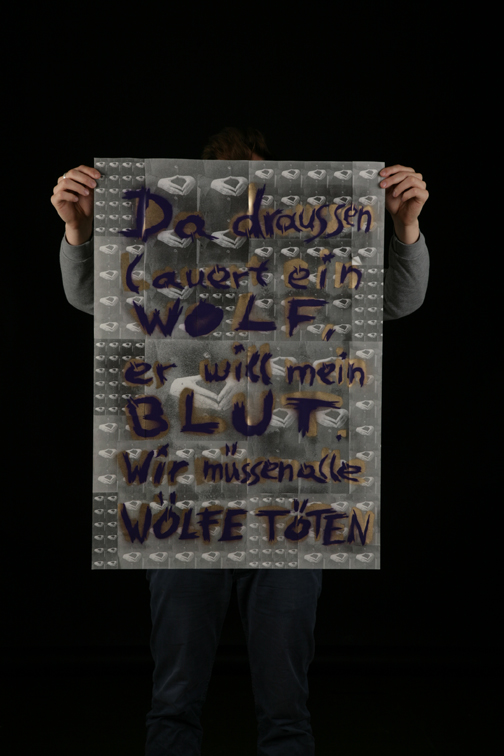 Da draussen
lauert ein
WOLF,
er will mein
BLUT.
Wir müssen alle
WÖLFE TÖTEN